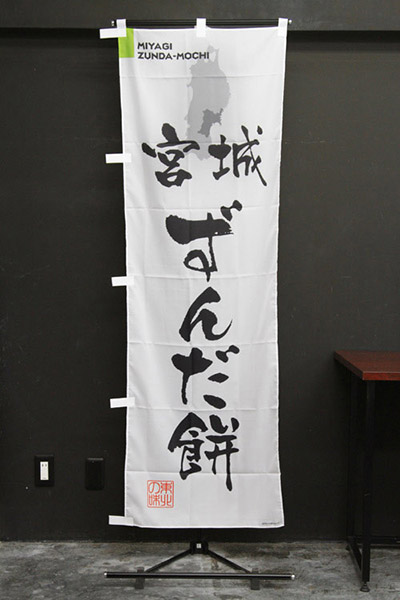 MIYAGI
ZUNDA-MOCHI
宮城
ずんだ餅
東北
の味